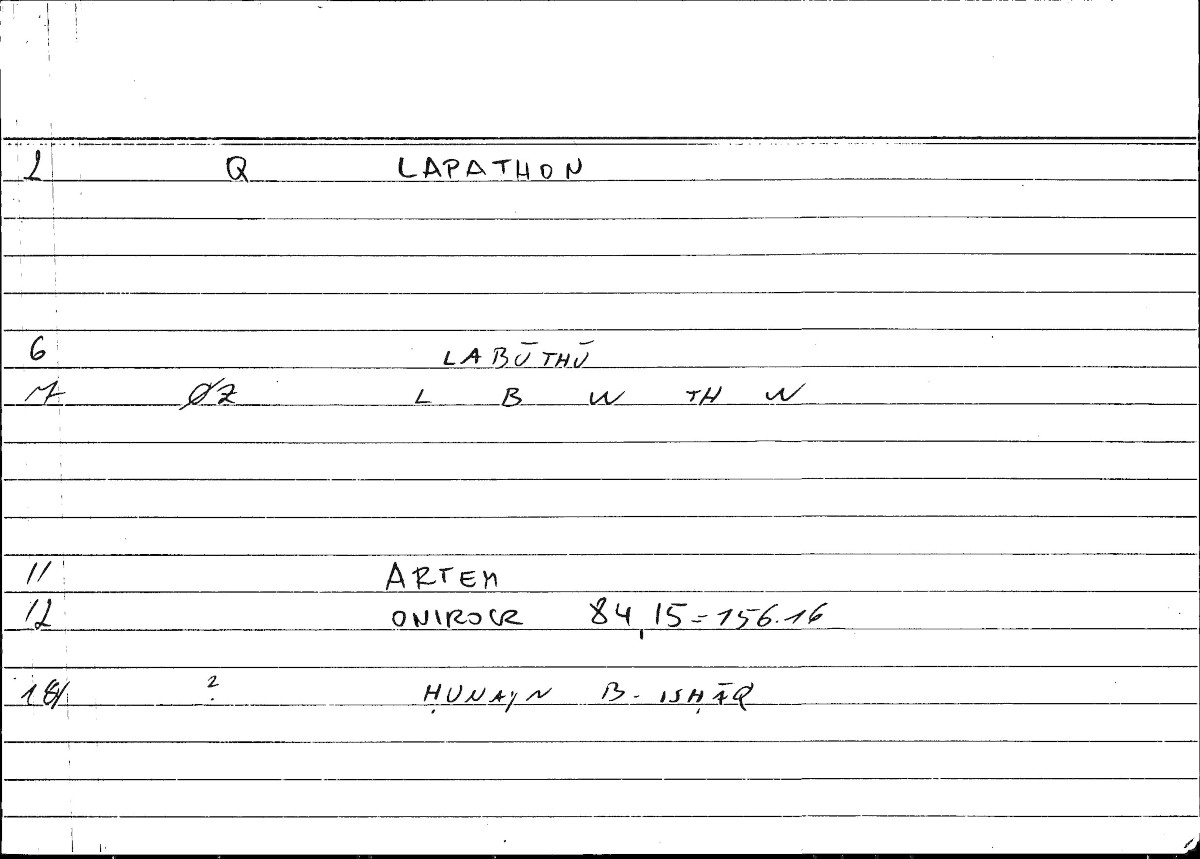 1 Q LAPATHON
6 LABŪTHŪ
7 ØZ L B W TH W
11 ARTEM
12 ONIROCR 84,15=156.16
18/ ? ḤUNAYN B. ISḤĀQ